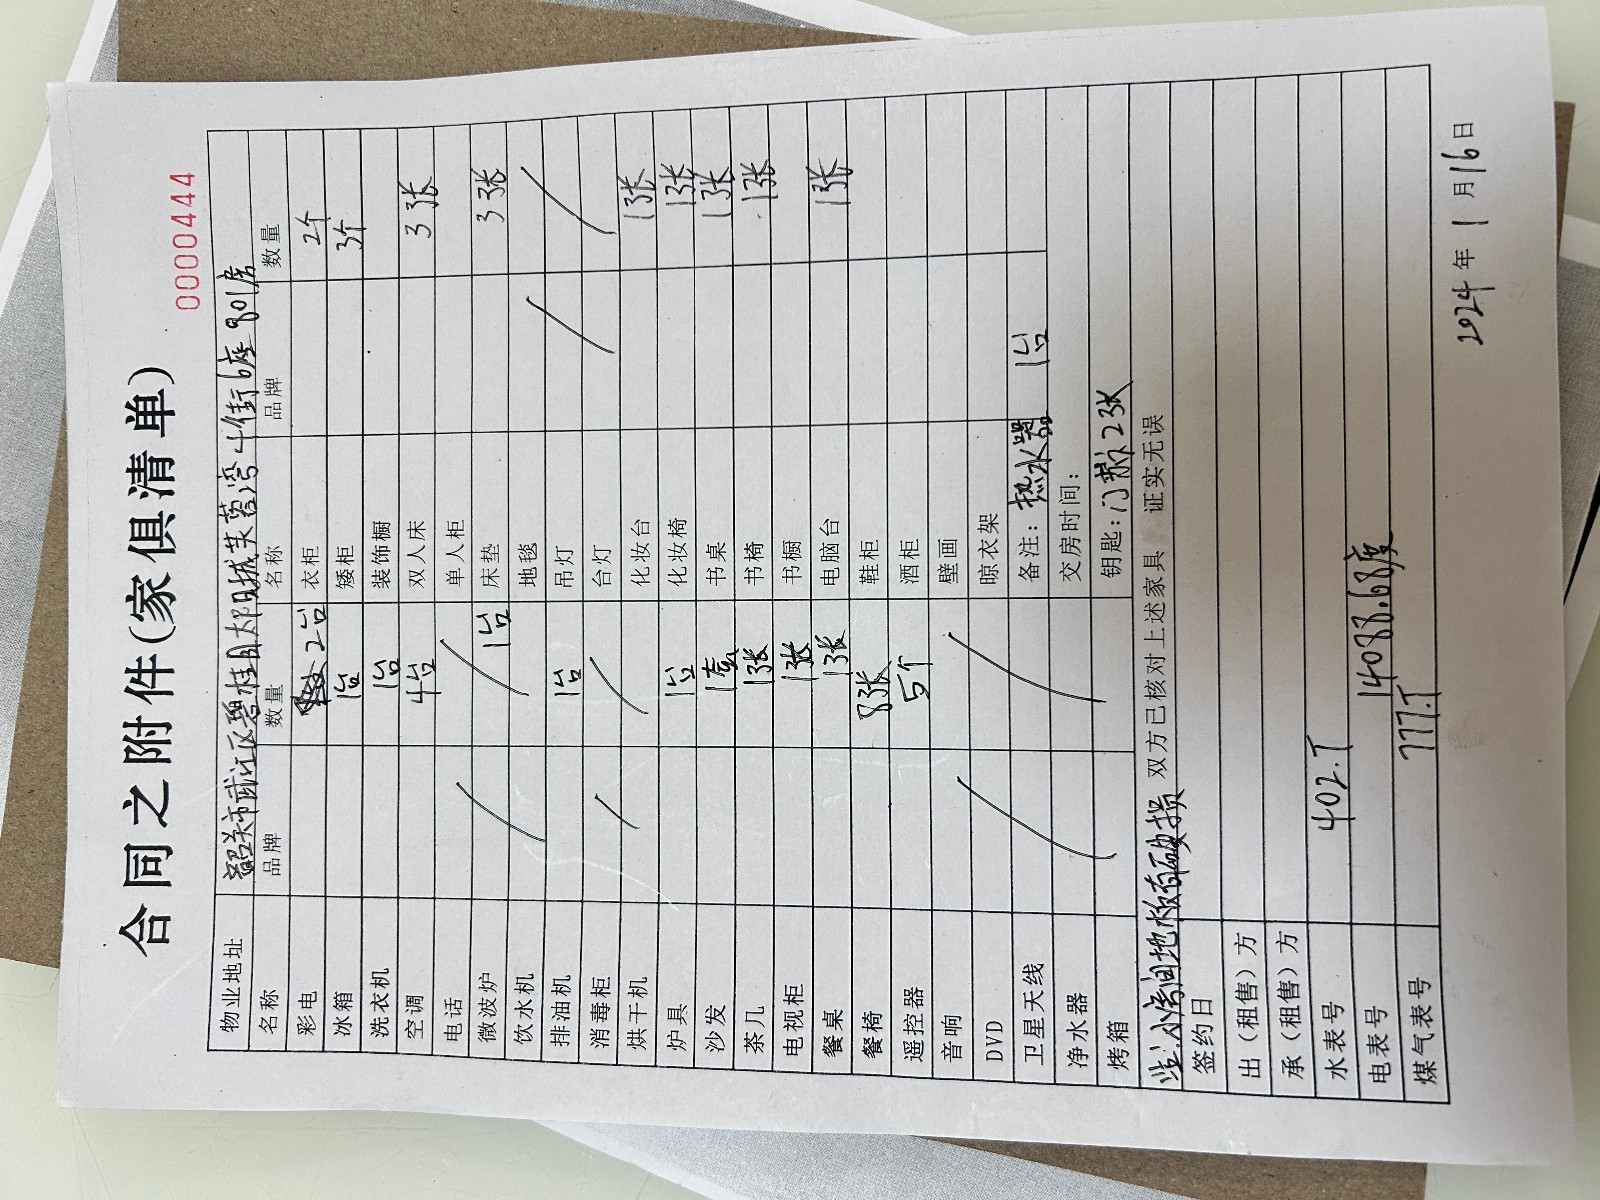 合同之附件(家俱清单)
0000444
物业地址 韶关市武江区碧桂园太阳城芙蓉湾4街6座801房
名称 品牌 数量 名称 品牌 数量
彩电 2台 衣柜 2个
冰箱 1台 矮柜 3个
洗衣机 1台 装饰橱
空调 4台 双人床 3张
电话 单人柜
微波炉 1台 床垫 3张
饮水机 地毯
排油机 1台 吊灯
消毒柜 台灯
烘干机 化妆台 1张
炉具 1台 化妆椅 1张
沙发 1套 书桌 1张
茶几 1张 书椅 1张
电视柜 1张 书橱
餐桌 1张 电脑台 1张
餐椅 8张 鞋柜
遥控器 5个 酒柜
音响 壁画
DVD 晾衣架
卫星天线 备注：热水器 1台
净水器 交房时间：
烤箱 钥匙：门禁2张
注:小房间地板有破损 双方已核对上述家具 证实无误
签约日
出（租售）方
承（租售）方
水表号 402.T
电表号 14088.68度
煤气表号 777.T
2024年1月16日